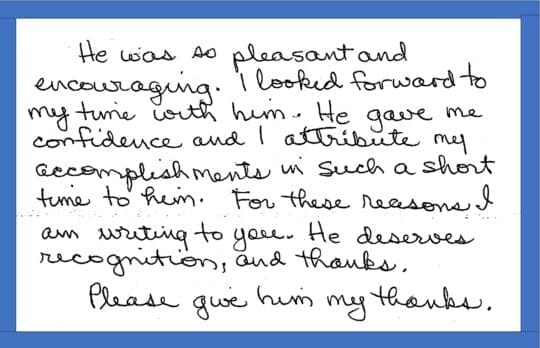 He was so pleasant and
encouraging. I looked forward to
my time with him. He gave me
confidence and I attribute my
accomplishments in such a short
time to him. For these reasons I
am writing to you. He deserves
recognition, and thanks.
Please give him my thanks.